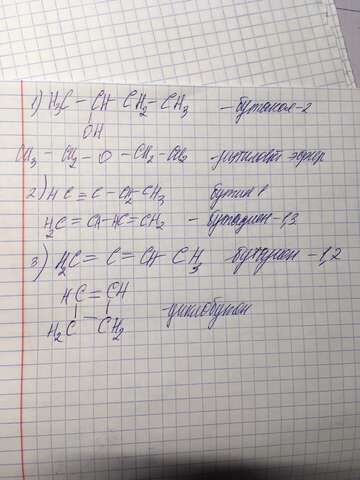 1) H₃C – CH CH₂ – CH₃ – бутанол-2
OH
CH₃ – CH₂ – O – CH₂ – CH₃ – этиловый эфир
2) HC ≡ C – CH₂ CH₃ бутин 1
H₂C = CH – HC = CH₂ – бутадиен – 1,3
3) H₂C = C = CH CH₃ бутадиен – 1,2
HC = CH
H₂C – CH₂ циклобутен